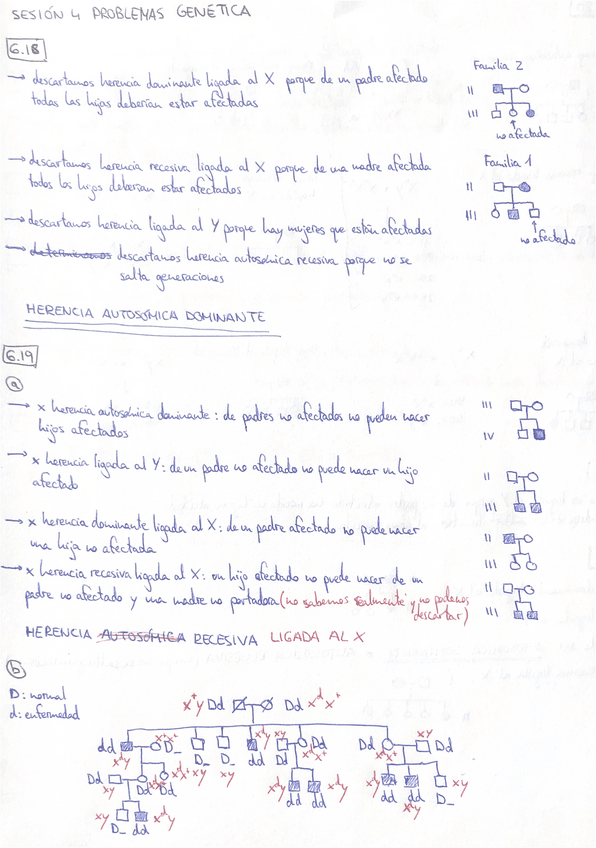 SESIÓN 4 PROBLEMAS GENÉTICA
6.18
→ descartamos herencia dominante ligada al X porque de un padre afectado
todas las hijas deberían estar afectadas
Familia 2
II
III
no afectada
→ descartamos herencia recesiva ligada al X porque de una madre afectada
todos los hijos deberían estar afectados
Familia 1
II
III
no afectado
→ descartamos herencia ligada al Y porque hay mujeres que están afectadas
→ determinamos descartamos herencia autosómica recesiva porque no se
salta generaciones
HERENCIA AUTOSÓMICA DOMINANTE
6.19
a
→ x herencia autosómica dominante: de padres no afectados no pueden nacer
hijos afectados
III
IV
→ x herencia ligada al Y: de un padre no afectado no puede nacer un hijo
afectado
II
III
→ x herencia dominante ligada al X: de un padre afectado no puede nacer
una hija no afectada
II
III
→ x herencia recesiva ligada al X: un hijo afectado no puede nacer de un
padre no afectado y una madre no portadora (no sabemos realmente y no podemos
descartar)
II
III
HERENCIA AUTOSÓMICA RECESIVA LIGADA AL X
b
D: normal
d: enfermedad
x⁺y Dd Dd xᵈx⁺
dd D_ D_ D_ dd Dd Dd Dd
xᵈy x⁺x⁺ xy xᵈy xy xᵈx⁺ xᵈx⁺ xy
Dd Dd Dd dd dd dd dd D_
xy xᵈx⁺ xᵈy xᵈy xᵈy xᵈy xy
xy D_ dd xᵈy